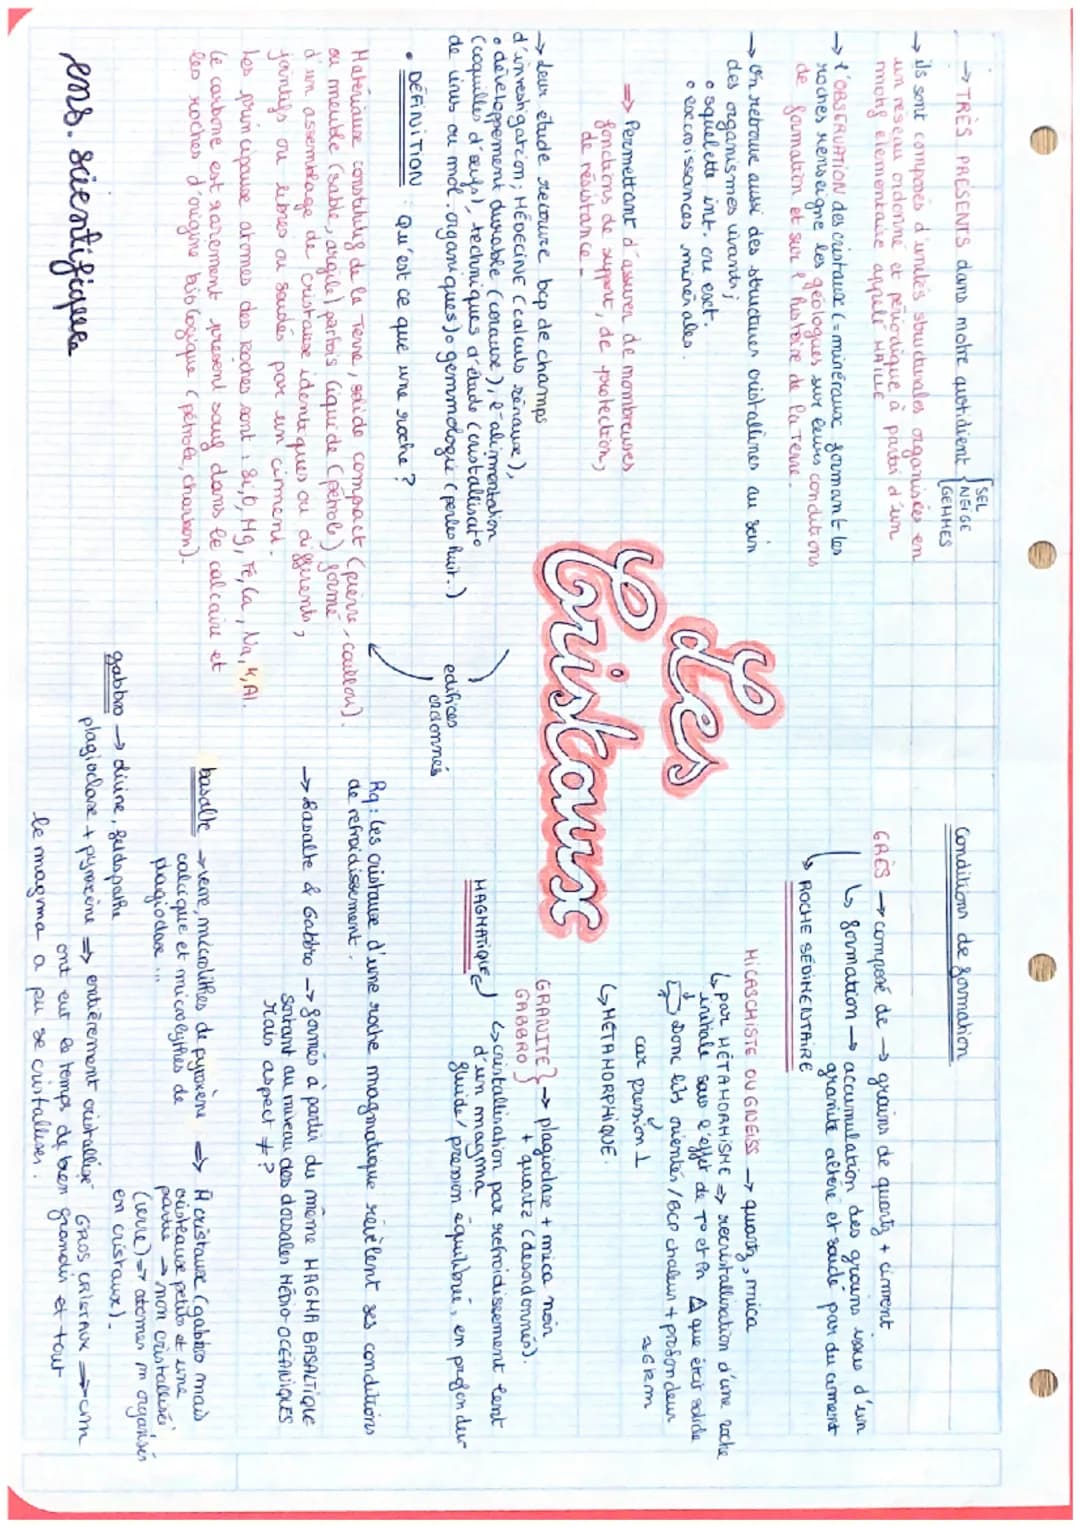 → TRÈS PRESENTS dans notre quotidient { SEL
NEIGE
GEMMES
→ ils sont composés d'unités structurales organisées en
un réseau ordonné et périodique à partir d'un
motif élémentaire appelé MAILLE
→ l'OBSERVATION des cristaux (= minéraux formant les
roches renseigne les géologues sur leurs conditions
de formation et sur l'histoire de la Terre.
→ On retrouve aussi des structures cristallines au sein
des organismes vivants ;
• squelette int. ou ext.
• excroissances minérales.
⇒ Permettant d'assurer de nombreuses
fonctions de support, de protection,
de résistance.
→ Leur étude recouvre bcp de champs
d'investigation ; MÉDECINE (calculs rénaux),
• développement durable (coraux), l'alimentation
(coquilles d'œufs), techniques d'étude (cristallisat°
de virus ou mol. organiques) • gemmologie (perles huit.)
• DÉFINITION : Qu'est ce que une roche ?
édifices
ordonnés
Matériaux constitutifs de la Terre, solide compact (pierre, caillou).
ou meuble (sable, argile) parfois liquide (pétrole) formé
d'un assemblage de cristaux identiques ou différents,
jointifs ou libres ou soudés par un ciment.
Les principaux atomes des roches sont : Si, O, Mg, Fe, Ca, Na, K, Al.
Le carbone est rarement présent sauf dans le calcaire et
les roches d'origine biologique (pétrole, charbon).
ens. scientifique
Les
Cristaux
Conditions de formation
GRÈS → composé de → grains de quartz + ciment
↳ formation → accumulation des grains issus d'un
granite altéré et soudé par du ciment
↳ ROCHE SÉDIMENTAIRE
MICASCHISTE OU GNEISS → quartz, mica
↳ par MÉTAMORHISME ⇒ recristallisation d'une roche
initiale sous l'effet de T° et Pn Δ que état solide
Donc lits orientés / Bcp chaleur + profondeur
car pression ⊥
≈ 6km
↳ MÉTAMORPHIQUE.
GRANITE } → plagioclase + mica noir
GABBRO + quartz (désordonnés).
MAGMATIQUE
↳ cristallisation par refroidissement lent
d'un magma
fluide / pression équilibré, en profondeur
Rq : les cristaux d'une roche magmatique révèlent ses conditions
de refroidissement.
→ Basalte & Gabbro → formés à partir du même MAGMA BASALTIQUE
sortant au niveau des dorsales MÉDIO-OCÉANIQUES
mais aspect ≠ ?
basalte → verre, microlithes de pyroxène
calcique et microlythes de
plagioclase ...
⇒ cristaux (gabbro mais
cristeaux petits et une
partie → non cristallisée
(verre) → atomes m organisés
en cristaux).
gabbro → olivine, feldspaths
plagioclase + pyroxène ⇒ entièrement cristallisé GROS CRISTAUX → cm
ont eut le temps de bien grandir et tout
le magma a pu se cristalliser.